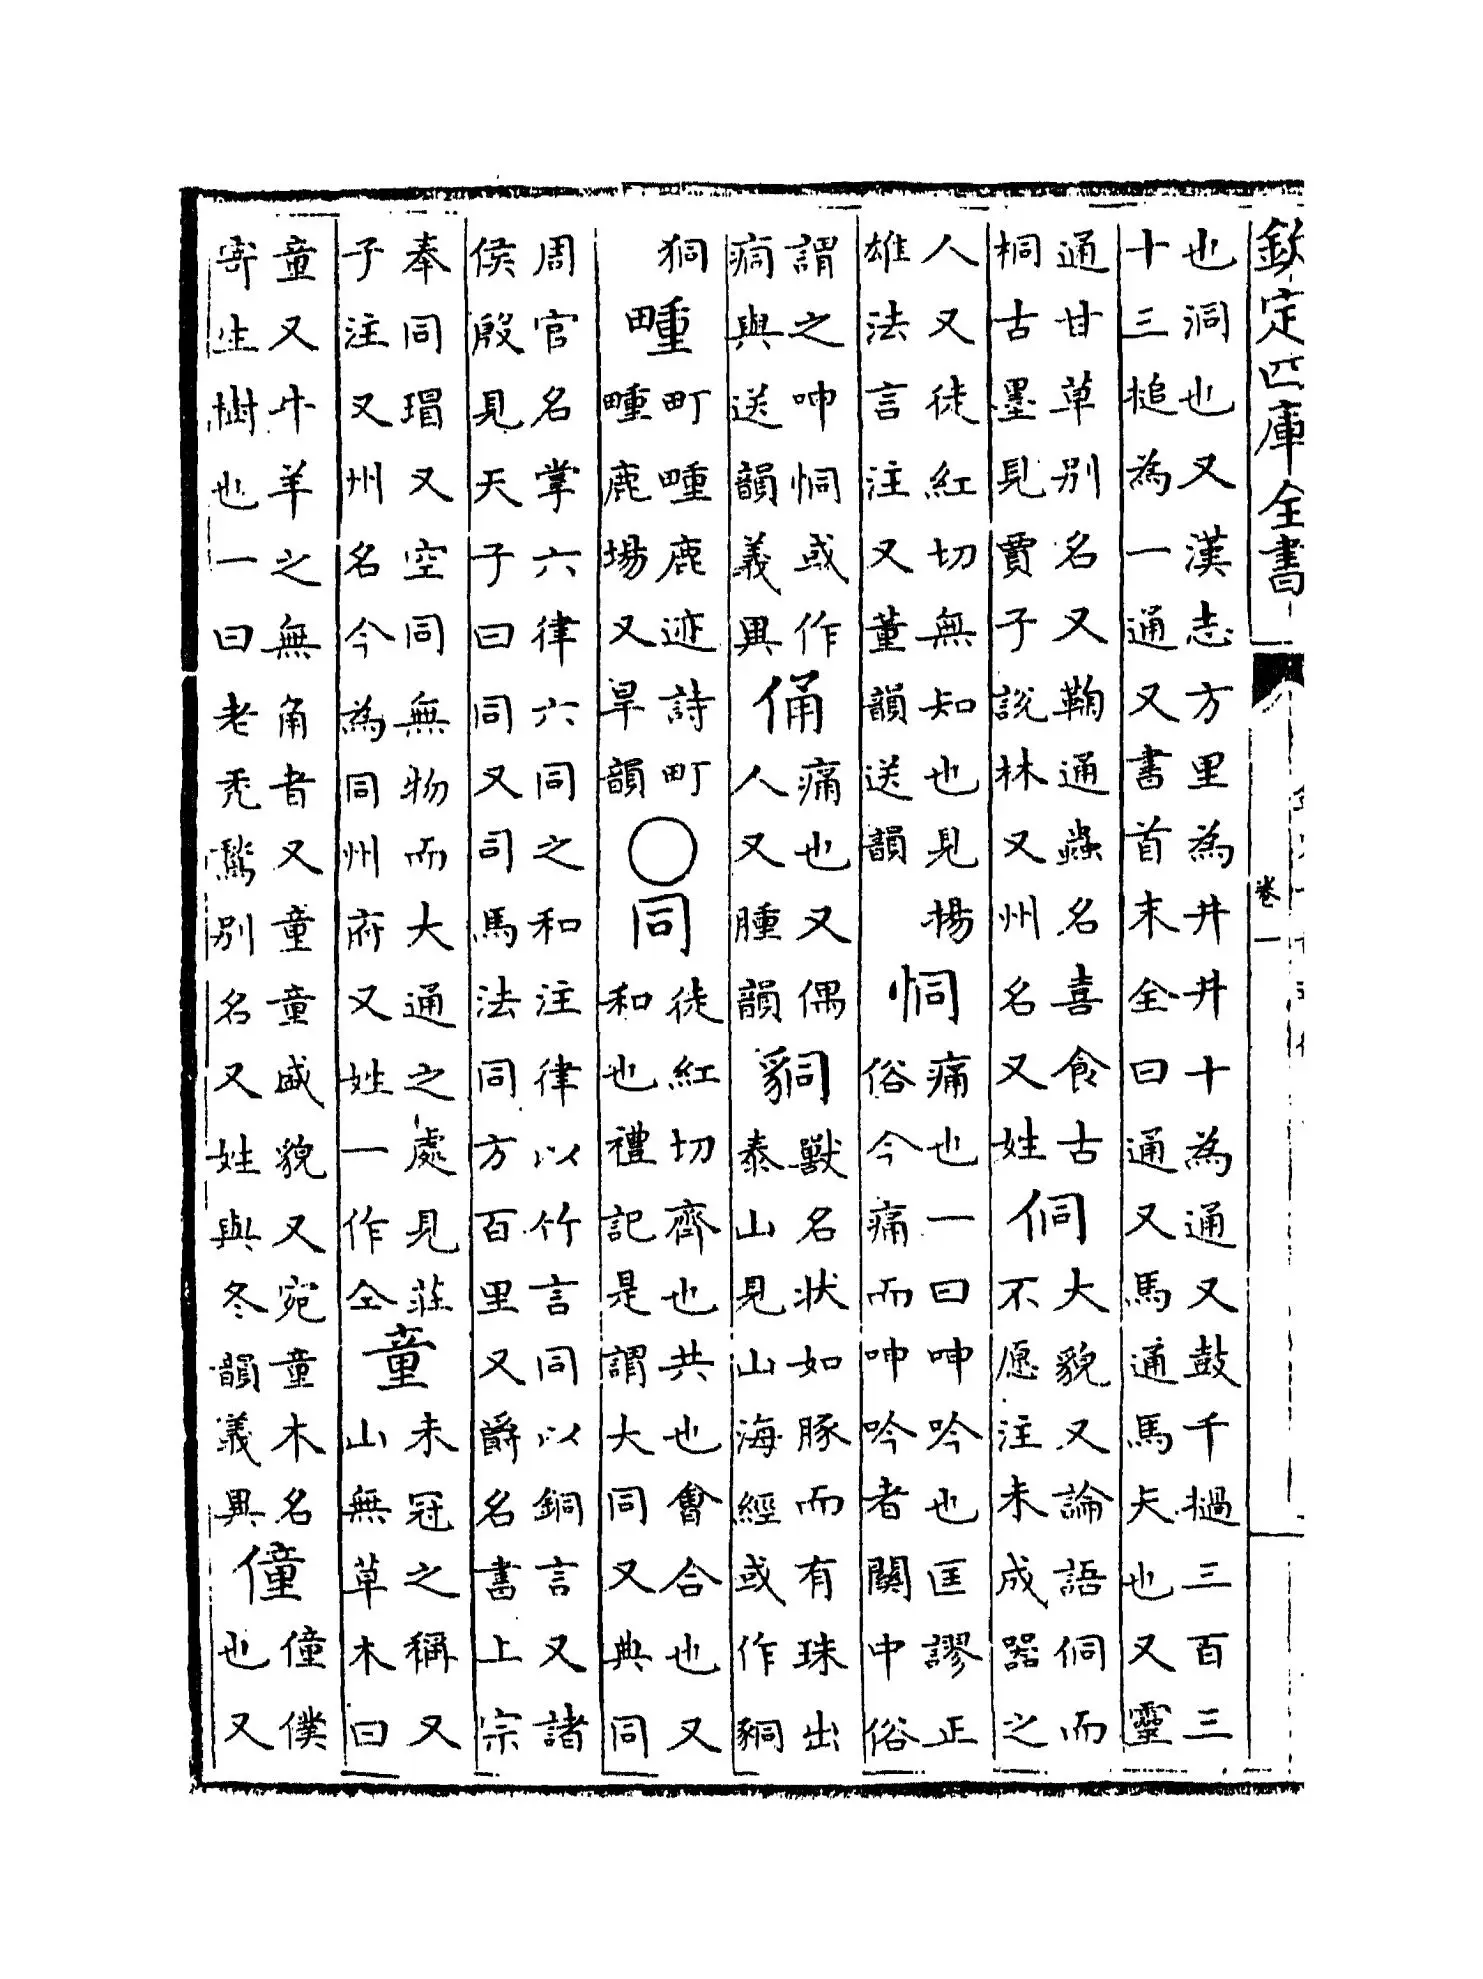 欽定四庫全書
卷一
也洞也又漢志方里為井井十為通又鼓千撾三百三
十三搥為一通又書首末全曰通又馬通馬矢也又靈
通甘草别名又鞠通蟲名喜食古
桐古墨見賈子說林又州名又姓
侗
大貌又論語侗而
不愿注未成器之
人又徒紅切無知也見揚
雄法言注又董韻送韻
恫
痛也一曰呻吟也匡謬正
俗今痛而呻吟者關中俗
謂之呻恫或作
痌與送韻義異
俑
痛也又偶
人又腫韻
獸名状如豚而有珠出
泰山見山海經或作
狪
畽
町畽鹿迹詩町
畽鹿場又旱韻
○同
徒紅切齊也共也㑹合也又
和也禮記是謂大同又典同
周官名掌六律六同之和注律以竹言同以銅言又諸
侯殷見天子曰同又司馬法同方百里又爵名書上宗
奉同瑁又空同無物而大通之處見莊
子注又州名今為同州府又姓一作仝
童
未冠之稱又
山無草木曰
童又牛羊之無角者又童童盛貌又宛童木名
寄生樹也一曰老禿鶖别名又姓與冬韻義異
僮
僮僕
也又